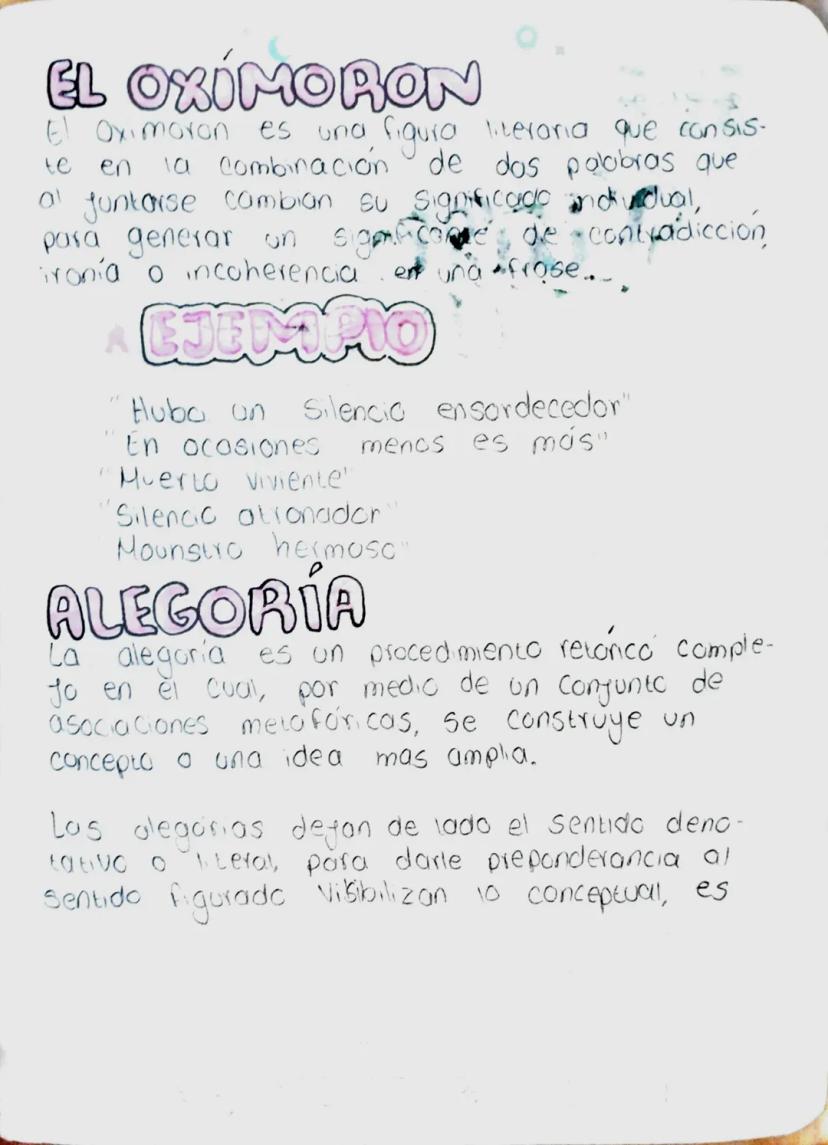 EL OXÍMORON
El Oximoron es una figura literaria que consis-
te en la combinación de dos palabras que
al juntarse cambian su significado individual,
para generar un significante de contradicción,
ironía o incoherencia en una frase.
EJEMPlO
"Hubo un silencio ensordecedor"
"En ocasiones menos es más"
"Muerto viviente"
"Silencio atronador"
Mounstro hermoso"
ALEGORÍA
La alegoría es un procedimiento retórico comple-
jo en el cual, por medio de un conjunto de
asociaciones metafóricas, se construye un
concepto o una idea mas amplia.
Las alegorias dejan de lado el sentido deno-
tativo o literal, para darle preponderancia al
sentido figurado visibilizan lo conceptual, es